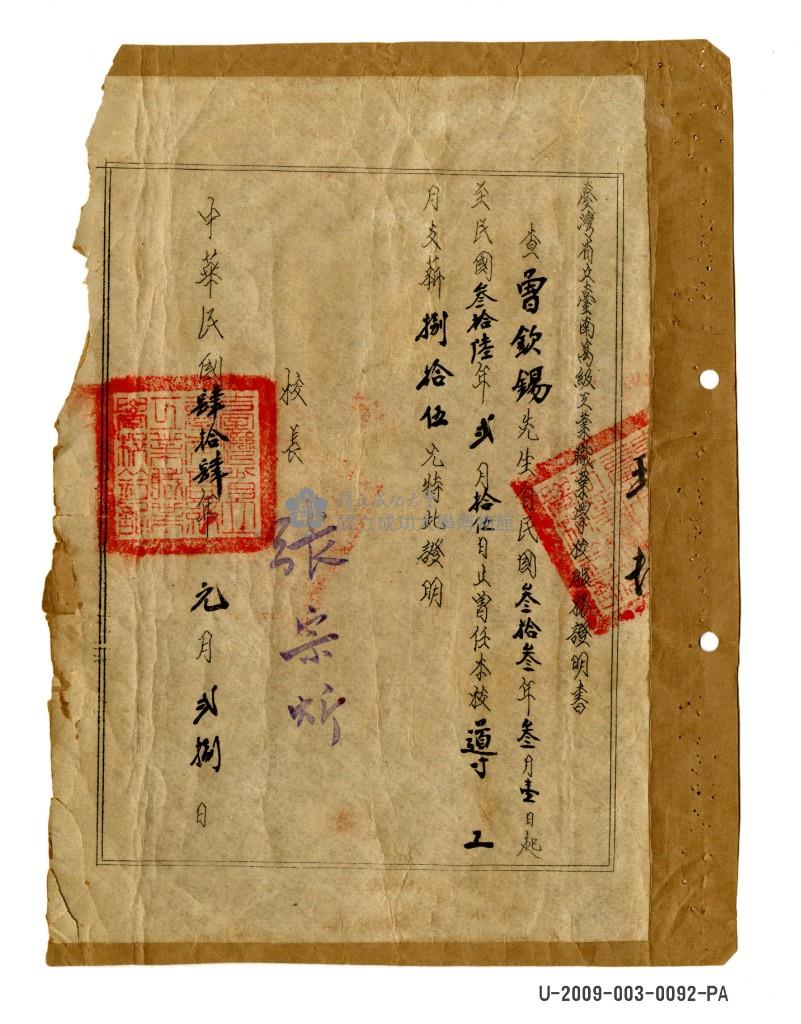 臺灣省立臺南高級工業職業學校服務證明書
查曾欽錫先生自民國叁拾叁年叁月壹日起
至民國叁拾陸年弍月拾伍日止曾任本校導工
月支薪捌拾伍元特此證明
校長
張宗炘
中華民國肆拾肆年元月弍捌日
國立成功大學
國立成功大學博物館
U-2009-003-0092-PA